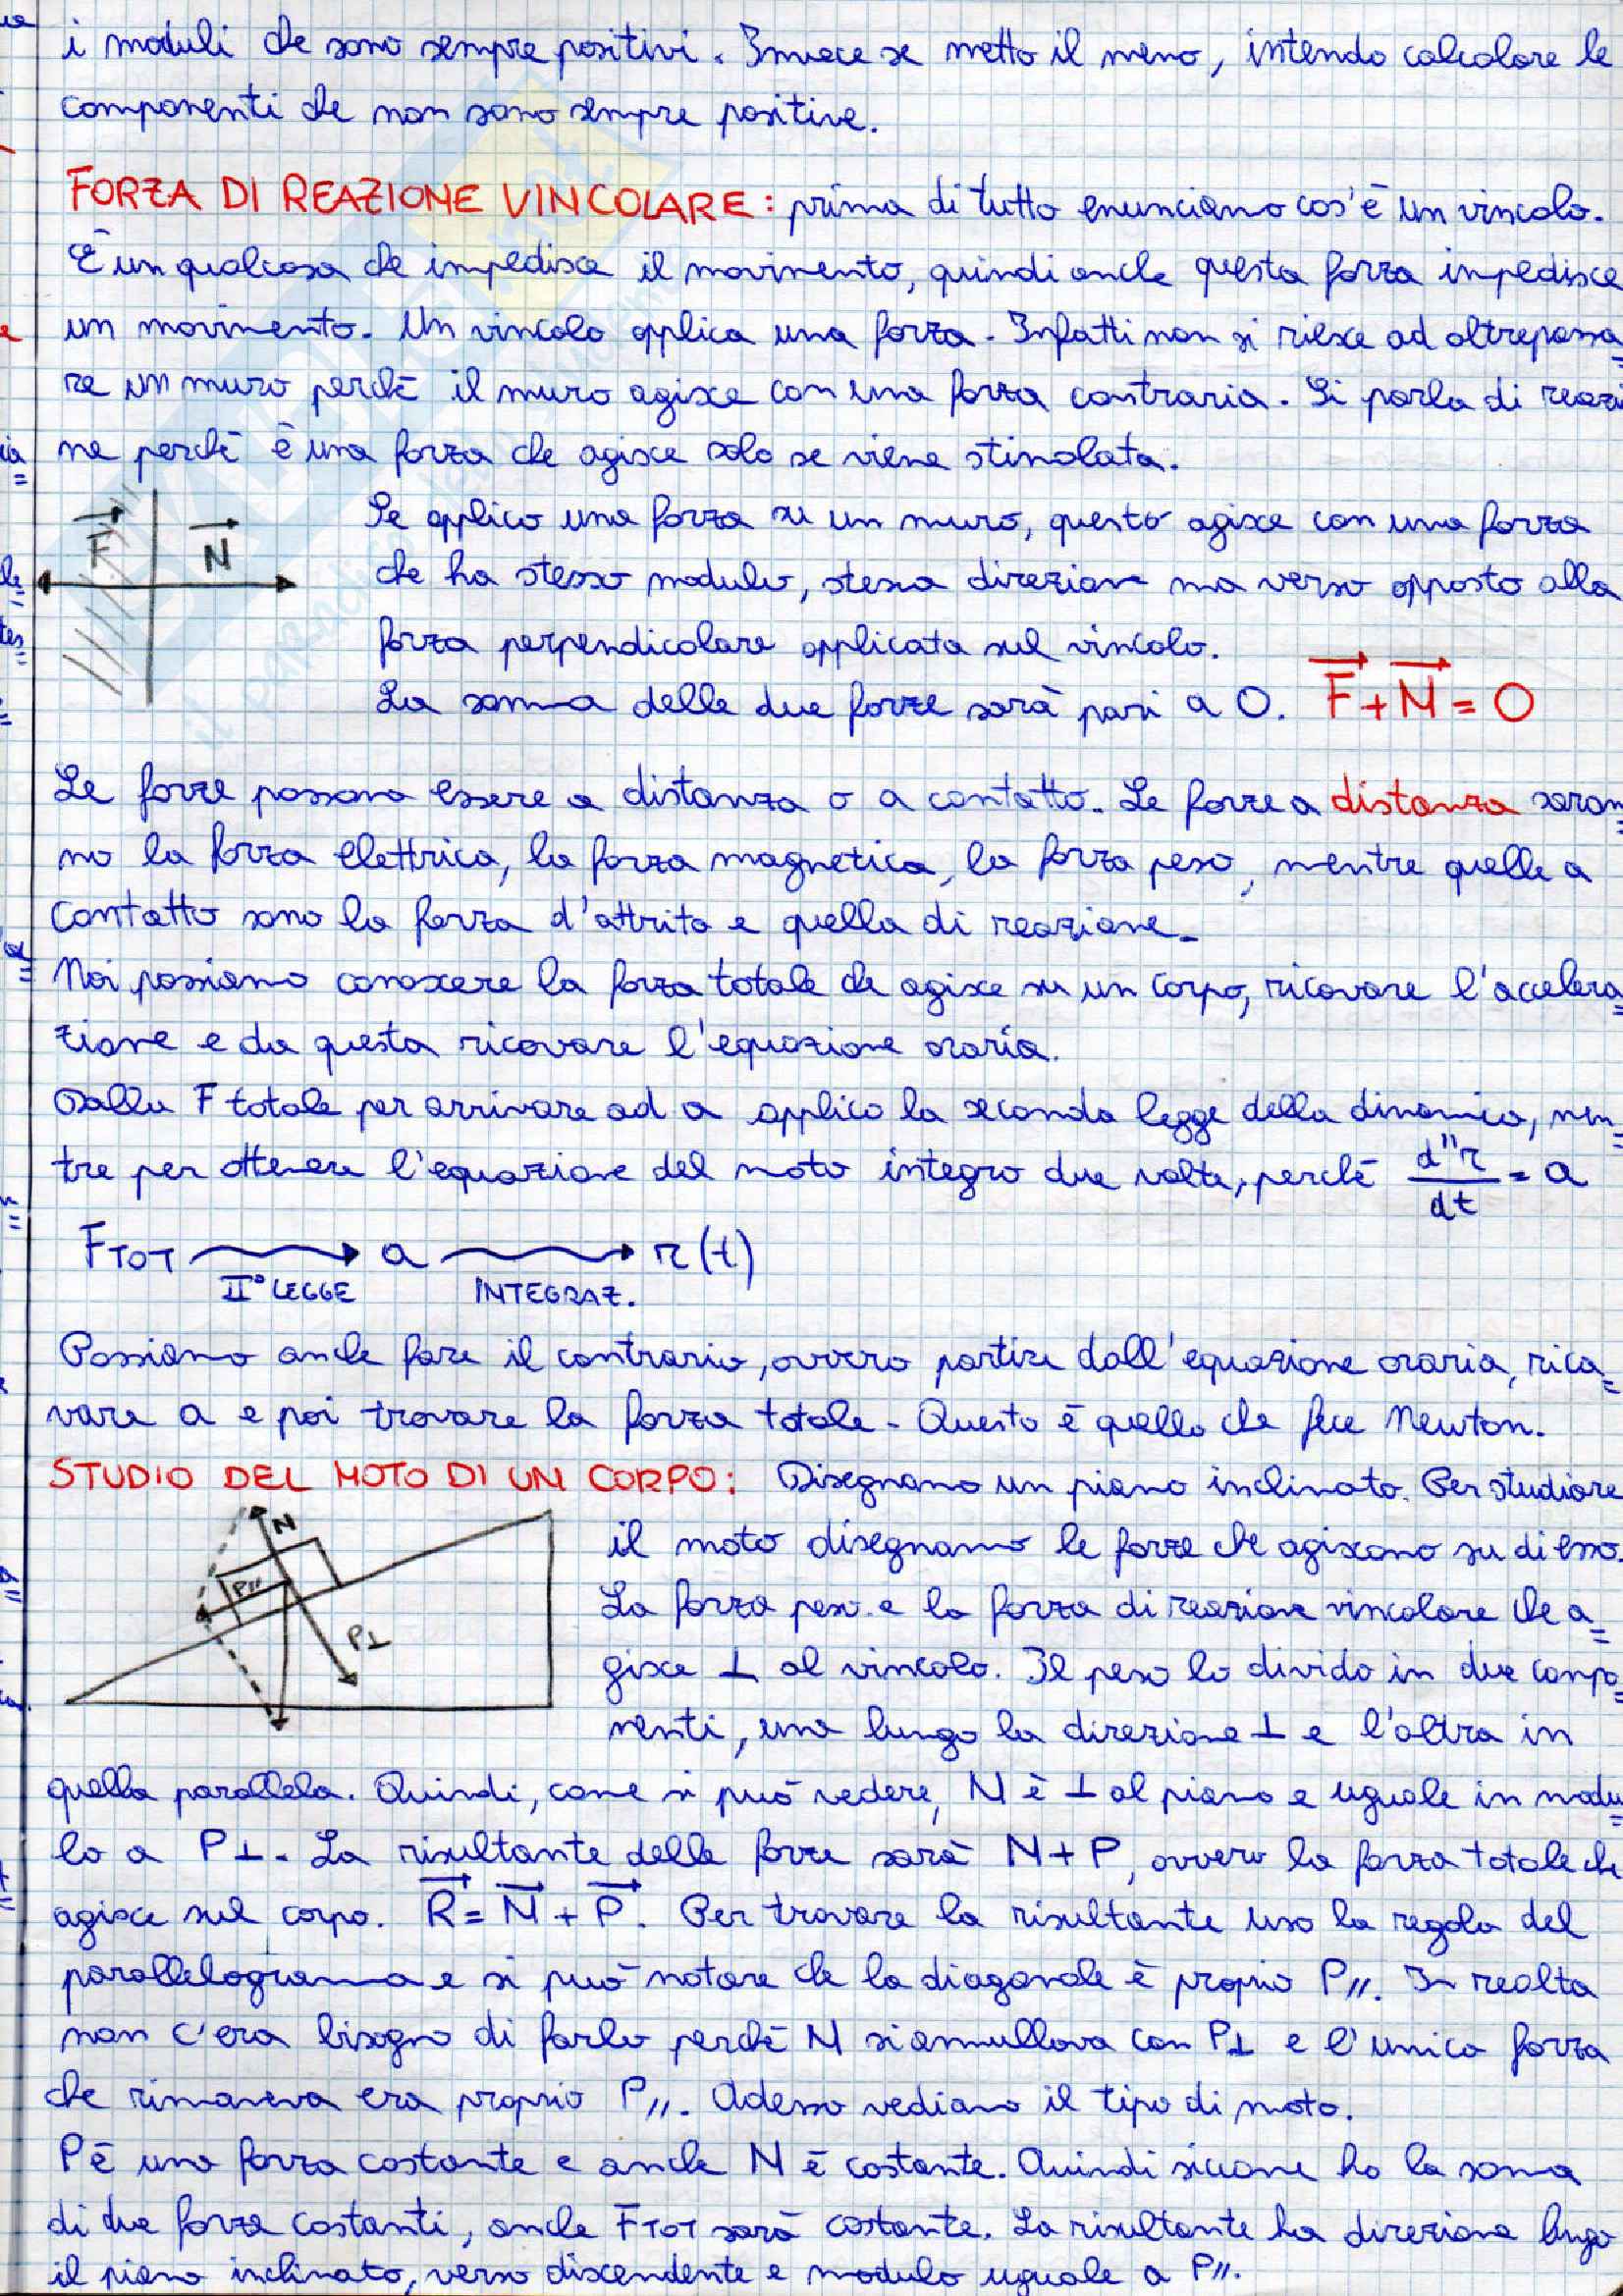 i moduli che sono sempre positivi. Invece se metto il meno, intendo calcolare le
componenti che non sono sempre positive.
FORZA DI REAZIONE VINCOLARE: prima di tutto enunciamo cos'è un vincolo.
È un qualcosa che impedisce il movimento, quindi anche questa forza impedisce
un movimento. Un vincolo applica una forza. Infatti non si riesce ad oltrepassa=
re un muro perché il muro agisce con una forza contraria. Si parla di reazi
ne perché è una forza che agisce solo se viene stimolata.
F N
Se applico una forza su un muro, questo agisce con una forza
che ha stesso modulo, stessa direzione ma verso opposto alla
forza perpendicolare applicata sul vincolo.
La somma delle due forze sarà pari a 0. F + N = 0
Le forze possono essere a distanza o a contatto. Le forze a distanza saran=
no la forza elettrica, la forza magnetica, la forza peso, mentre quelle a
contatto sono la forza d'attrito e quella di reazione.
Noi possiamo conoscere la forza totale che agisce su un corpo, ricavare l'accelera=
zione e da questa ricavare l'equazione oraria.
Dalla F totale per arrivare ad a applico la seconda legge della dinamica, men=
tre per ottenere l'equazione del moto integro due volte, perché d''r/dt = a
FTOT → a → r(t)
II° LEGGE INTEGRAZ.
Possiamo anche fare il contrario, ovvero partire dall'equazione oraria, rica=
vare a e poi trovare la forza totale. Questo è quello che fece Newton.
STUDIO DEL MOTO DI UN CORPO: Disegnamo un piano inclinato. Per studiare
il moto disegnamo le forze che agiscono su di esso.
La forza peso e la forza di reazione vincolare che a=
gisce ⊥ al vincolo. Il peso lo divido in due compo=
nenti, una lungo la direzione ⊥ e l'altra in
N
P//
P⊥
quella parallela. Quindi, come si può vedere, N è ⊥ al piano e uguale in modu=
lo a P⊥. La risultante delle forze sarà N+P, ovvero la forza totale che
agisce sul corpo. R = N + P. Per trovare la risultante uso la regola del
parallelogramma e si può notare che la diagonale è proprio P//. In realtà
non c'era bisogno di farlo perché N si annullava con P⊥ e l'unica forza
che rimaneva era proprio P//. Adesso vediamo il tipo di moto.
P è una forza costante e anche N è costante. Quindi siccome ho la somma
di due forze costanti, anche FTOT sarà costante. La risultante ha direzione lungo
il piano inclinato, verso discendente e modulo uguale a P//.